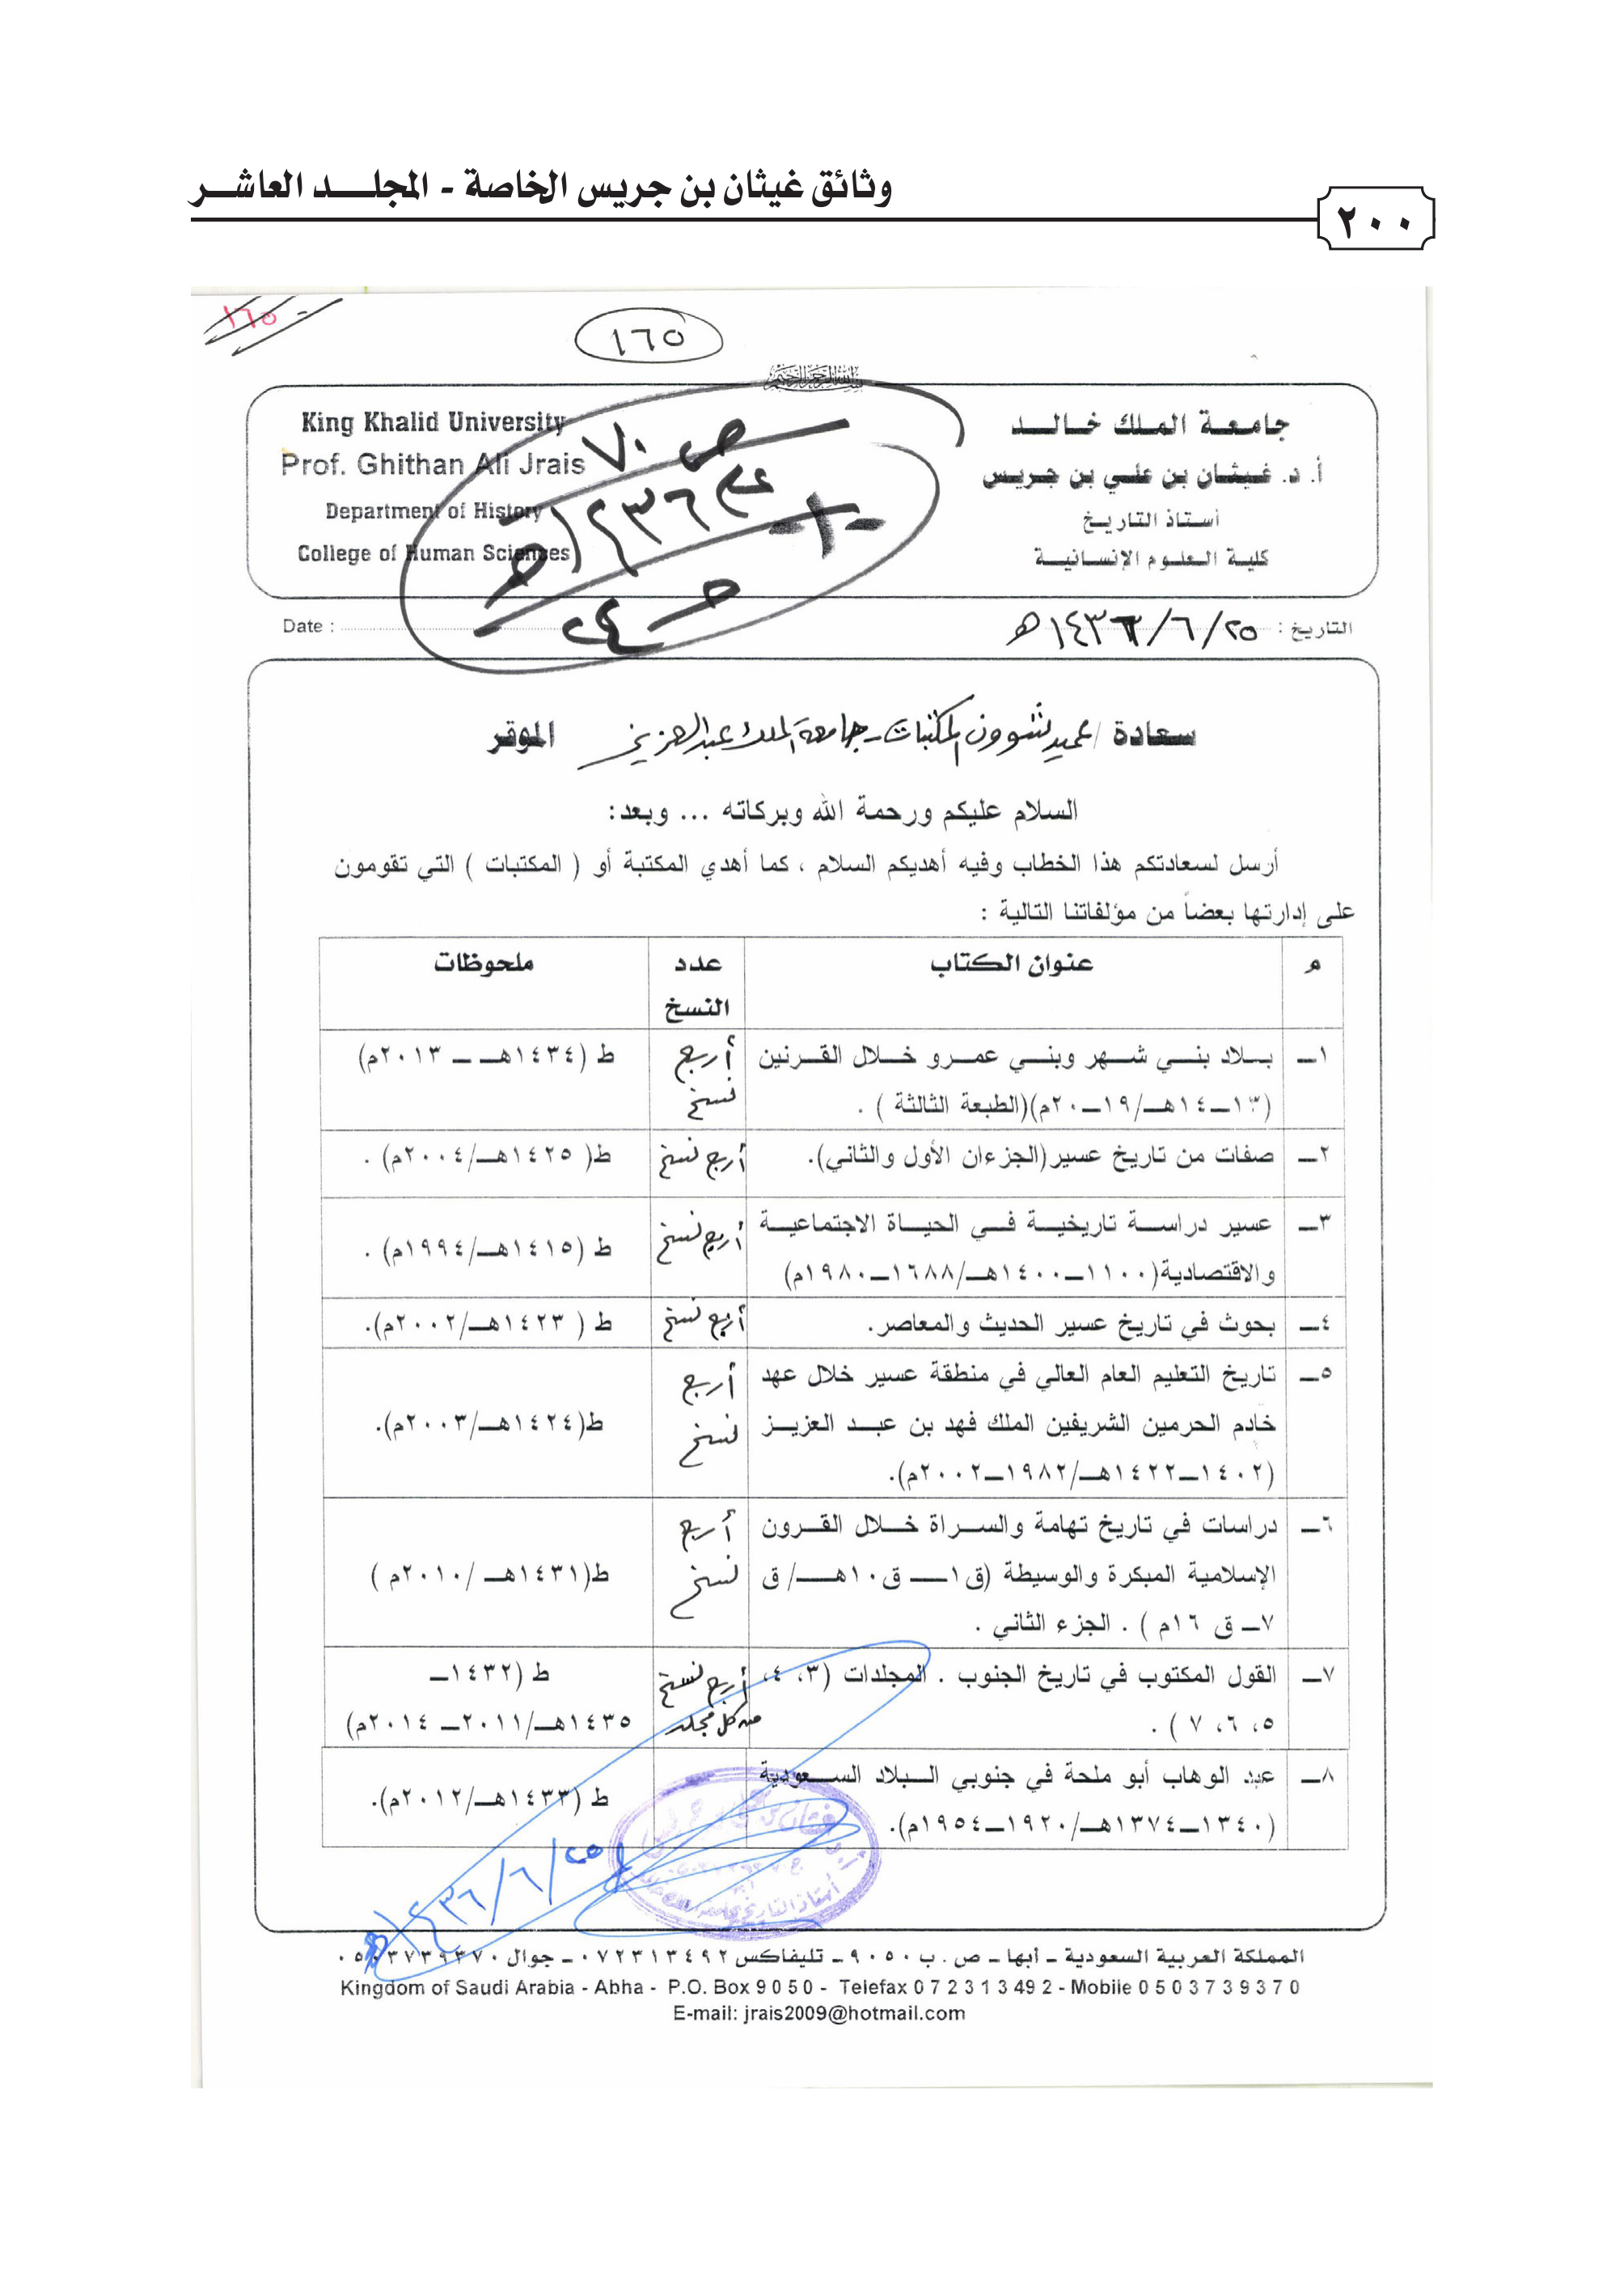 وثائق غيثان بن جريس الخاصة - المجلد العاشر
٢٠٠
١٦٥
١٦٥
بسم الله الرحمن الرحيم
جامعة الملك خالد
أ. د. غيثان بن علي بن جريس
أستاذ التاريخ
كلية العلوم الإنسانية
King Khalid University
Prof. Ghithan Ali Jrais
Department of History
College of Human Sciences
ص ٧٠
١٤٣٦هـ
-١-
التاريخ : ٢٥/٦/١٤٣٦هـ
Date :
سعادة / عميد شؤون المكتبات - جامعة الملك عبدالعزيز الموقر
السلام عليكم ورحمة الله وبركاته ... وبعد:
أرسل لسعادتكم هذا الخطاب وفيه أهديكم السلام ، كما أهدي المكتبة أو ( المكتبات ) التي تقومون
على إدارتها بعضاً من مؤلفاتنا التالية :
م عنوان الكتاب عدد النسخ ملحوظات
١ــ بلاد بني شهر وبني عمرو خلال القرنين أربع ط (١٤٣٤هـ ــ ٢٠١٣م)
(١٣ــ١٤هـ/١٩ــ٢٠م)(الطبعة الثالثة ) . نسخ
٢ــ صفات من تاريخ عسير(الجزءان الأول والثاني). أربع نسخ ط( ١٤٢٥هـ/٢٠٠٤م) .
٣ــ عسير دراسة تاريخية في الحياة الاجتماعية أربع نسخ ط (١٤١٥هـ/١٩٩٤م) .
والاقتصادية(١١٠٠ــ١٤٠٠هـ/١٦٨٨ــ١٩٨٠م)
٤ــ بحوث في تاريخ عسير الحديث والمعاصر. أربع نسخ ط ( ١٤٢٣هـ/٢٠٠٢م).
٥ــ تاريخ التعليم العام العالي في منطقة عسير خلال عهد أربع
خادم الحرمين الشريفين الملك فهد بن عبد العزيز نسخ ط(١٤٢٤هـ/٢٠٠٣م).
(١٤٠٢ــ١٤٢٢هـ/١٩٨٢ــ٢٠٠٢م).
٦ــ دراسات في تاريخ تهامة والسراة خلال القرون أربع
الإسلامية المبكرة والوسيطة (ق١ــ ق١٠هـ/ ق نسخ ط(١٤٣١هـ /٢٠١٠م )
٧ــ ق ١٦م ) . الجزء الثاني .
٧ــ القول المكتوب في تاريخ الجنوب . المجلدات (٣، ٤، أربع نسخ ط (١٤٣٢ــ
٥، ٦، ٧ ) . من كل مجلد ١٤٣٥هـ/٢٠١١ــ ٢٠١٤م)
٨ــ عبد الوهاب أبو ملحة في جنوبي البلاد السعودية ط (١٤٣٣هـ/٢٠١٢م).
(١٣٤٠ــ١٣٧٤هـ/١٩٢٠ــ١٩٥٤م).
٢٥/٦/١٤٣٦هـ
المملكة العربية السعودية ــ أبها ــ ص . ب ٩٠٥٠ ــ تليفاكس ٠٧٢٣١٣٤٩٢ ــ جوال ٠٥٠٣٧٣٩٣٧٠
Kingdom of Saudi Arabia - Abha - P.O. Box 9 0 5 0 - Telefax 0 7 2 3 1 3 49 2 - Mobile 0 5 0 3 7 3 9 3 7 0
E-mail: jrais2009@hotmail.com